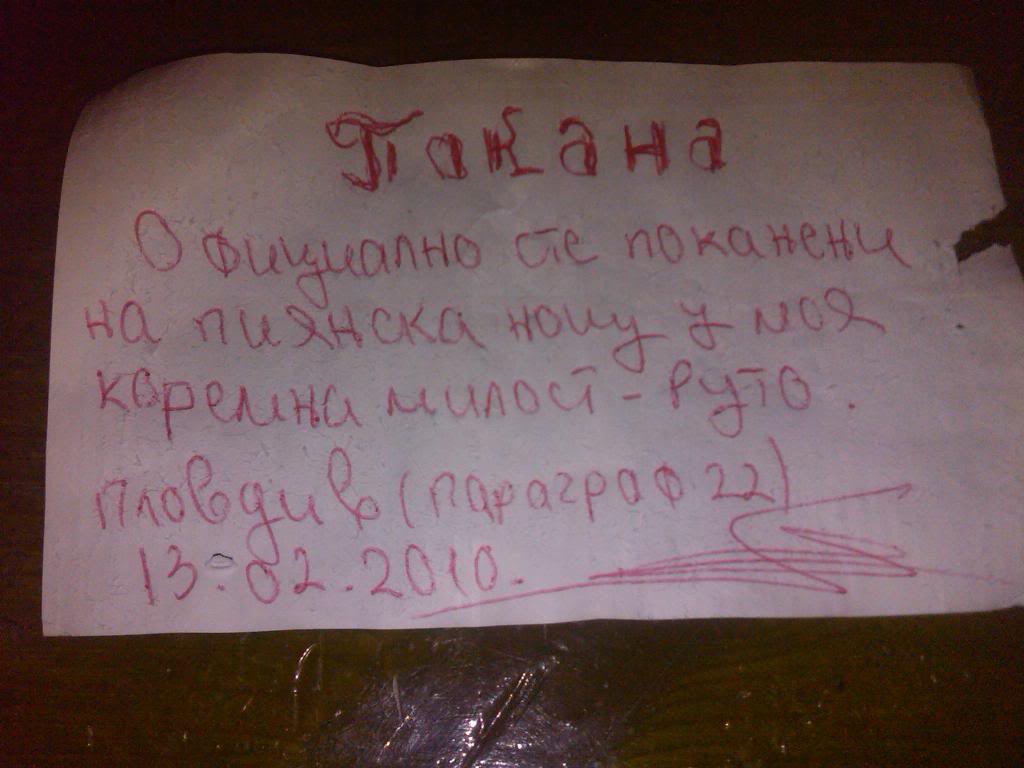 Покана
Официално сте поканени
на пиянска нощ у моя
коремна милост - Руто.
Пловдив (параграф 22)
13.02.2010.